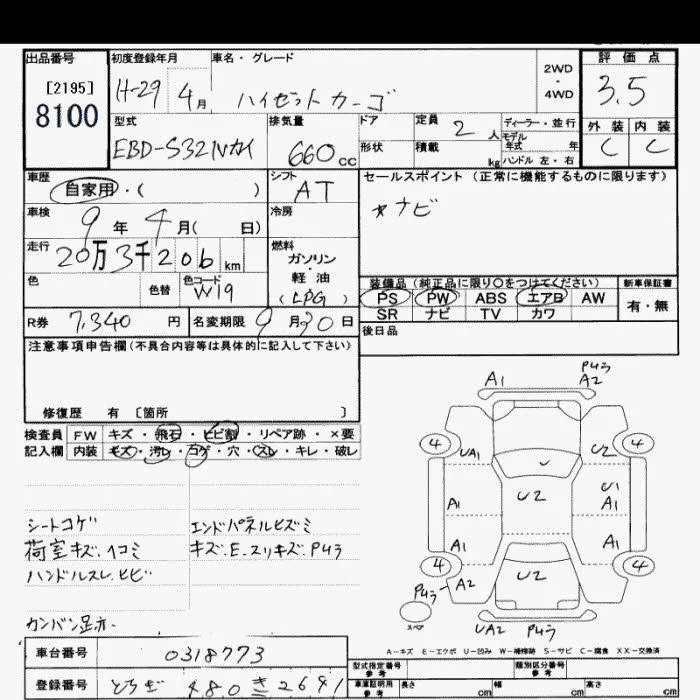 出品番号
[2195]
8100
初度登録年月
H-29 4月
車名・グレード
ハイゼットカーゴ
2WD
・
4WD
評価点
3.5
外装 内装
C C
型式
EBD-S321Vカイ
排気量
660cc
ドア
形状
定員 2人
積載 kg
ディーラー・並行
モデル
年式 年
ハンドル 左・右
車歴
自家用・( )
シフト
AT
セールスポイント (正常に機能するものに限ります)
ナビ
車検
9年 4月( 日)
冷房
走行
20万3千206km
燃料
ガソリン
・
軽油
(LPG)
色
色替
色コード
W19
装備品 (純正品に限り○をつけてください)
PS PW ABS エアB AW
SR ナビ TV カワ
新車保証書
有・無
R券 7,340円
名変期限 9月30日
後日品
注意事項申告欄(不具合内容等は具体的に記入して下さい)
修復歴 有 〔箇所 〕
検査員
記入欄
FW キズ・飛石・ヒビ割・リペア跡・×要
内装 キズ・汚レ・コゲ・穴・スレ・キレ・破レ
シートコゲ
荷室キズ、ヘコミ
ハンドルスレ、ヒビ
カンバン足赤
エンドパネルヒズミ
キズ.E.スリキズ.Pキラ
A1
A2
4
4
UA1
U2
U2
A1
U1
A1
A1
A1
4
4
A2
U2
スペア
UA2
A-キズ E-エクボ U-凹み W-補修跡 S-サビ C-腐食 XX-交換済
車台番号 0318773
登録番号 とちぎ 480 き 2641
型式指定番号
参考
類別区分番号
参考
車庫証明用
参考
長さ cm
幅 cm
高さ cm